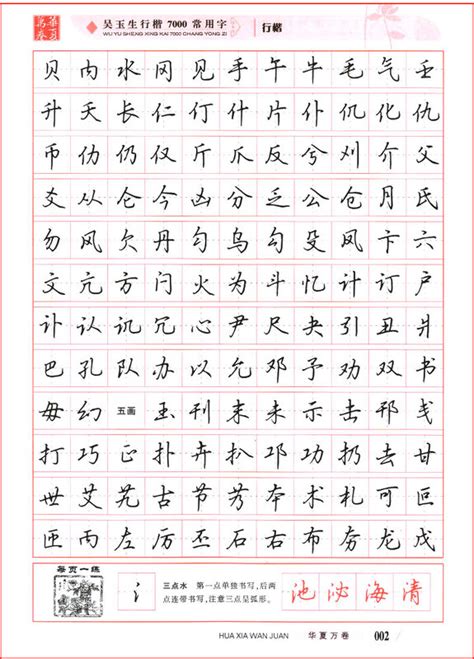 華夏萬卷
吴玉生行楷 7000 常用字
WU YU SHENG XING KAI 7000 CHANG YONG ZI
行楷
贝内水冈见手午牛毛气壬
升天长仁仃什片仆仉化仇
币仂仍仅斤爪反兮刈介父
爻从仑今凶分乏公仓月氏
勿风欠丹匀乌勾殳凤卞六
文亢方闩火为斗忆计订户
讣认讥冗心尹尺夬引丑爿
巴孔队办以允邓予劝双书
毋幻五画玉刊耒未示击邗戋
打巧正扑卉扒邛功扔去甘
世艾艽古节艿本术札可叵
匝丙左厉丕石右布夯龙戊
每页一练
三点水 第一点单独书写,后两
点连带书写,注意三点呈弧形。
氵
池泌海清
HUA XIA WAN JUAN 华夏万卷 002